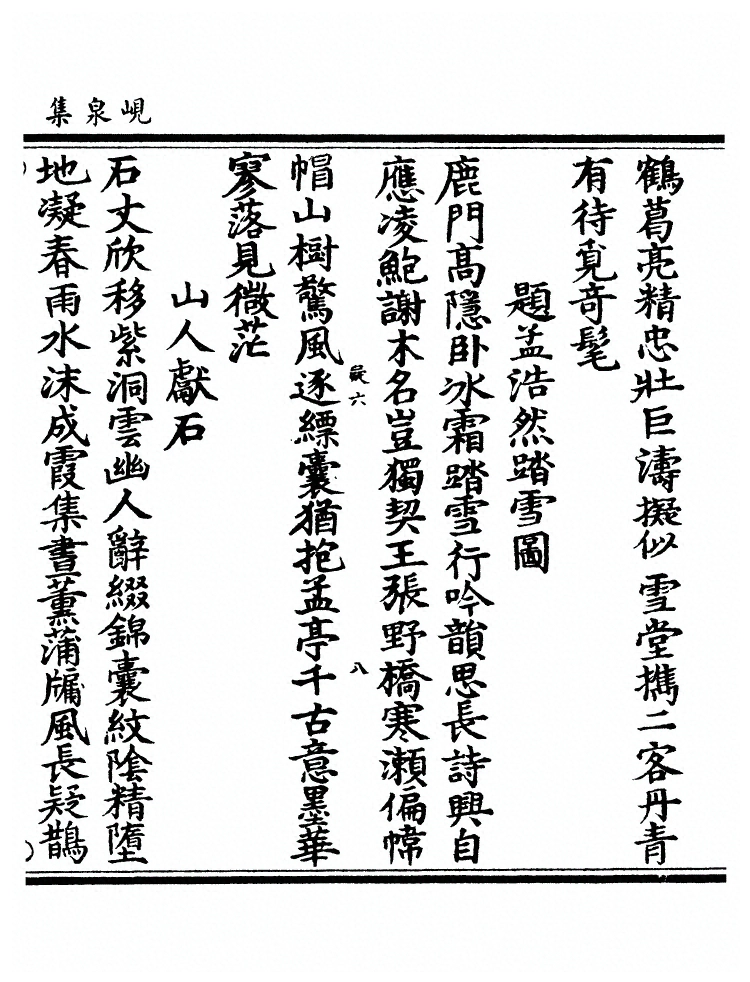 峴泉集
鶴葛亮精忠壯巨濤擬似雪堂擕二客丹青
有待覓奇髦
題孟浩然踏雪圖
鹿門高隱卧冰霜踏雪行吟韻思長詩興自
應凌鮑謝木名豈獨契王張野橋寒瀬偏幃
帽山樹驚風逐縹囊猶抱孟亭千古意墨華
寥落見微茫
疑六
八
山人獻石
石丈欣移紫洞雲幽人辭綴錦囊紋陰精墮
地凝春雨水沫成霞集晝薰蒲牖風長疑鵲